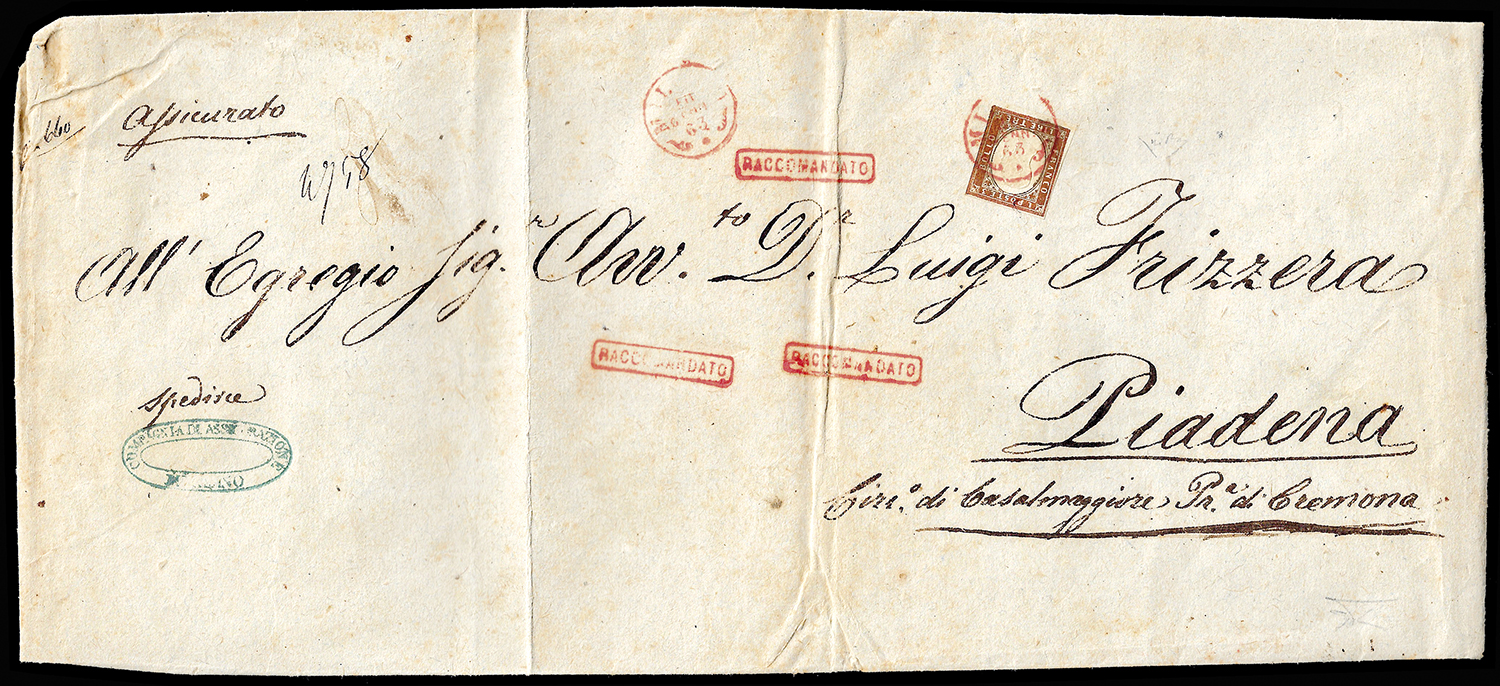 Assicurato
660
MIL
63
RACCOMANDATO
FRANCO
BOLLO
C. POSTE
LIRE TRE
All' Egregio Sig.r Avv.to D.r Luigi Frizzera
RACCOMANDATO
RACCOMANDATO
Spedisce
COMPAGNIA DI ASSICURAZIONE
MILANO
Piadena
Circ.o di Casalmaggiore Pr.a di Cremona